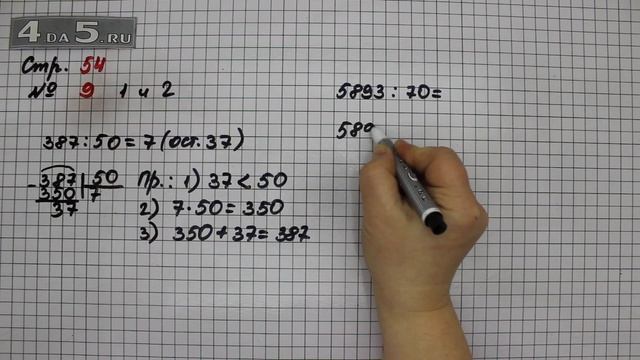 4 DA 5.RU
Стр. 54
№ 9 1 и 2
387 : 50 = 7 (ост. 37)
- 387 | 50
350 | 7
37
Пр.: 1) 37 < 50
2) 7 · 50 = 350
3) 350 + 37 = 387
5893 : 70 =
589